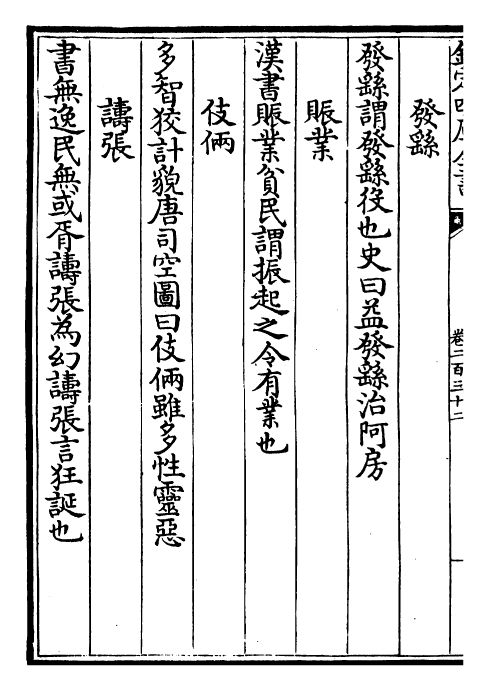 欽定四庫全書
卷二百三十二
發繇
發繇謂發繇役也史曰益發繇治阿房
賑業
漢書賑業貧民謂振起之令有業也
伎倆
多智狡計貌唐司空圖曰伎倆雖多性靈惡
譸張
書無逸民無或胥譸張為幻譸張言狂誕也